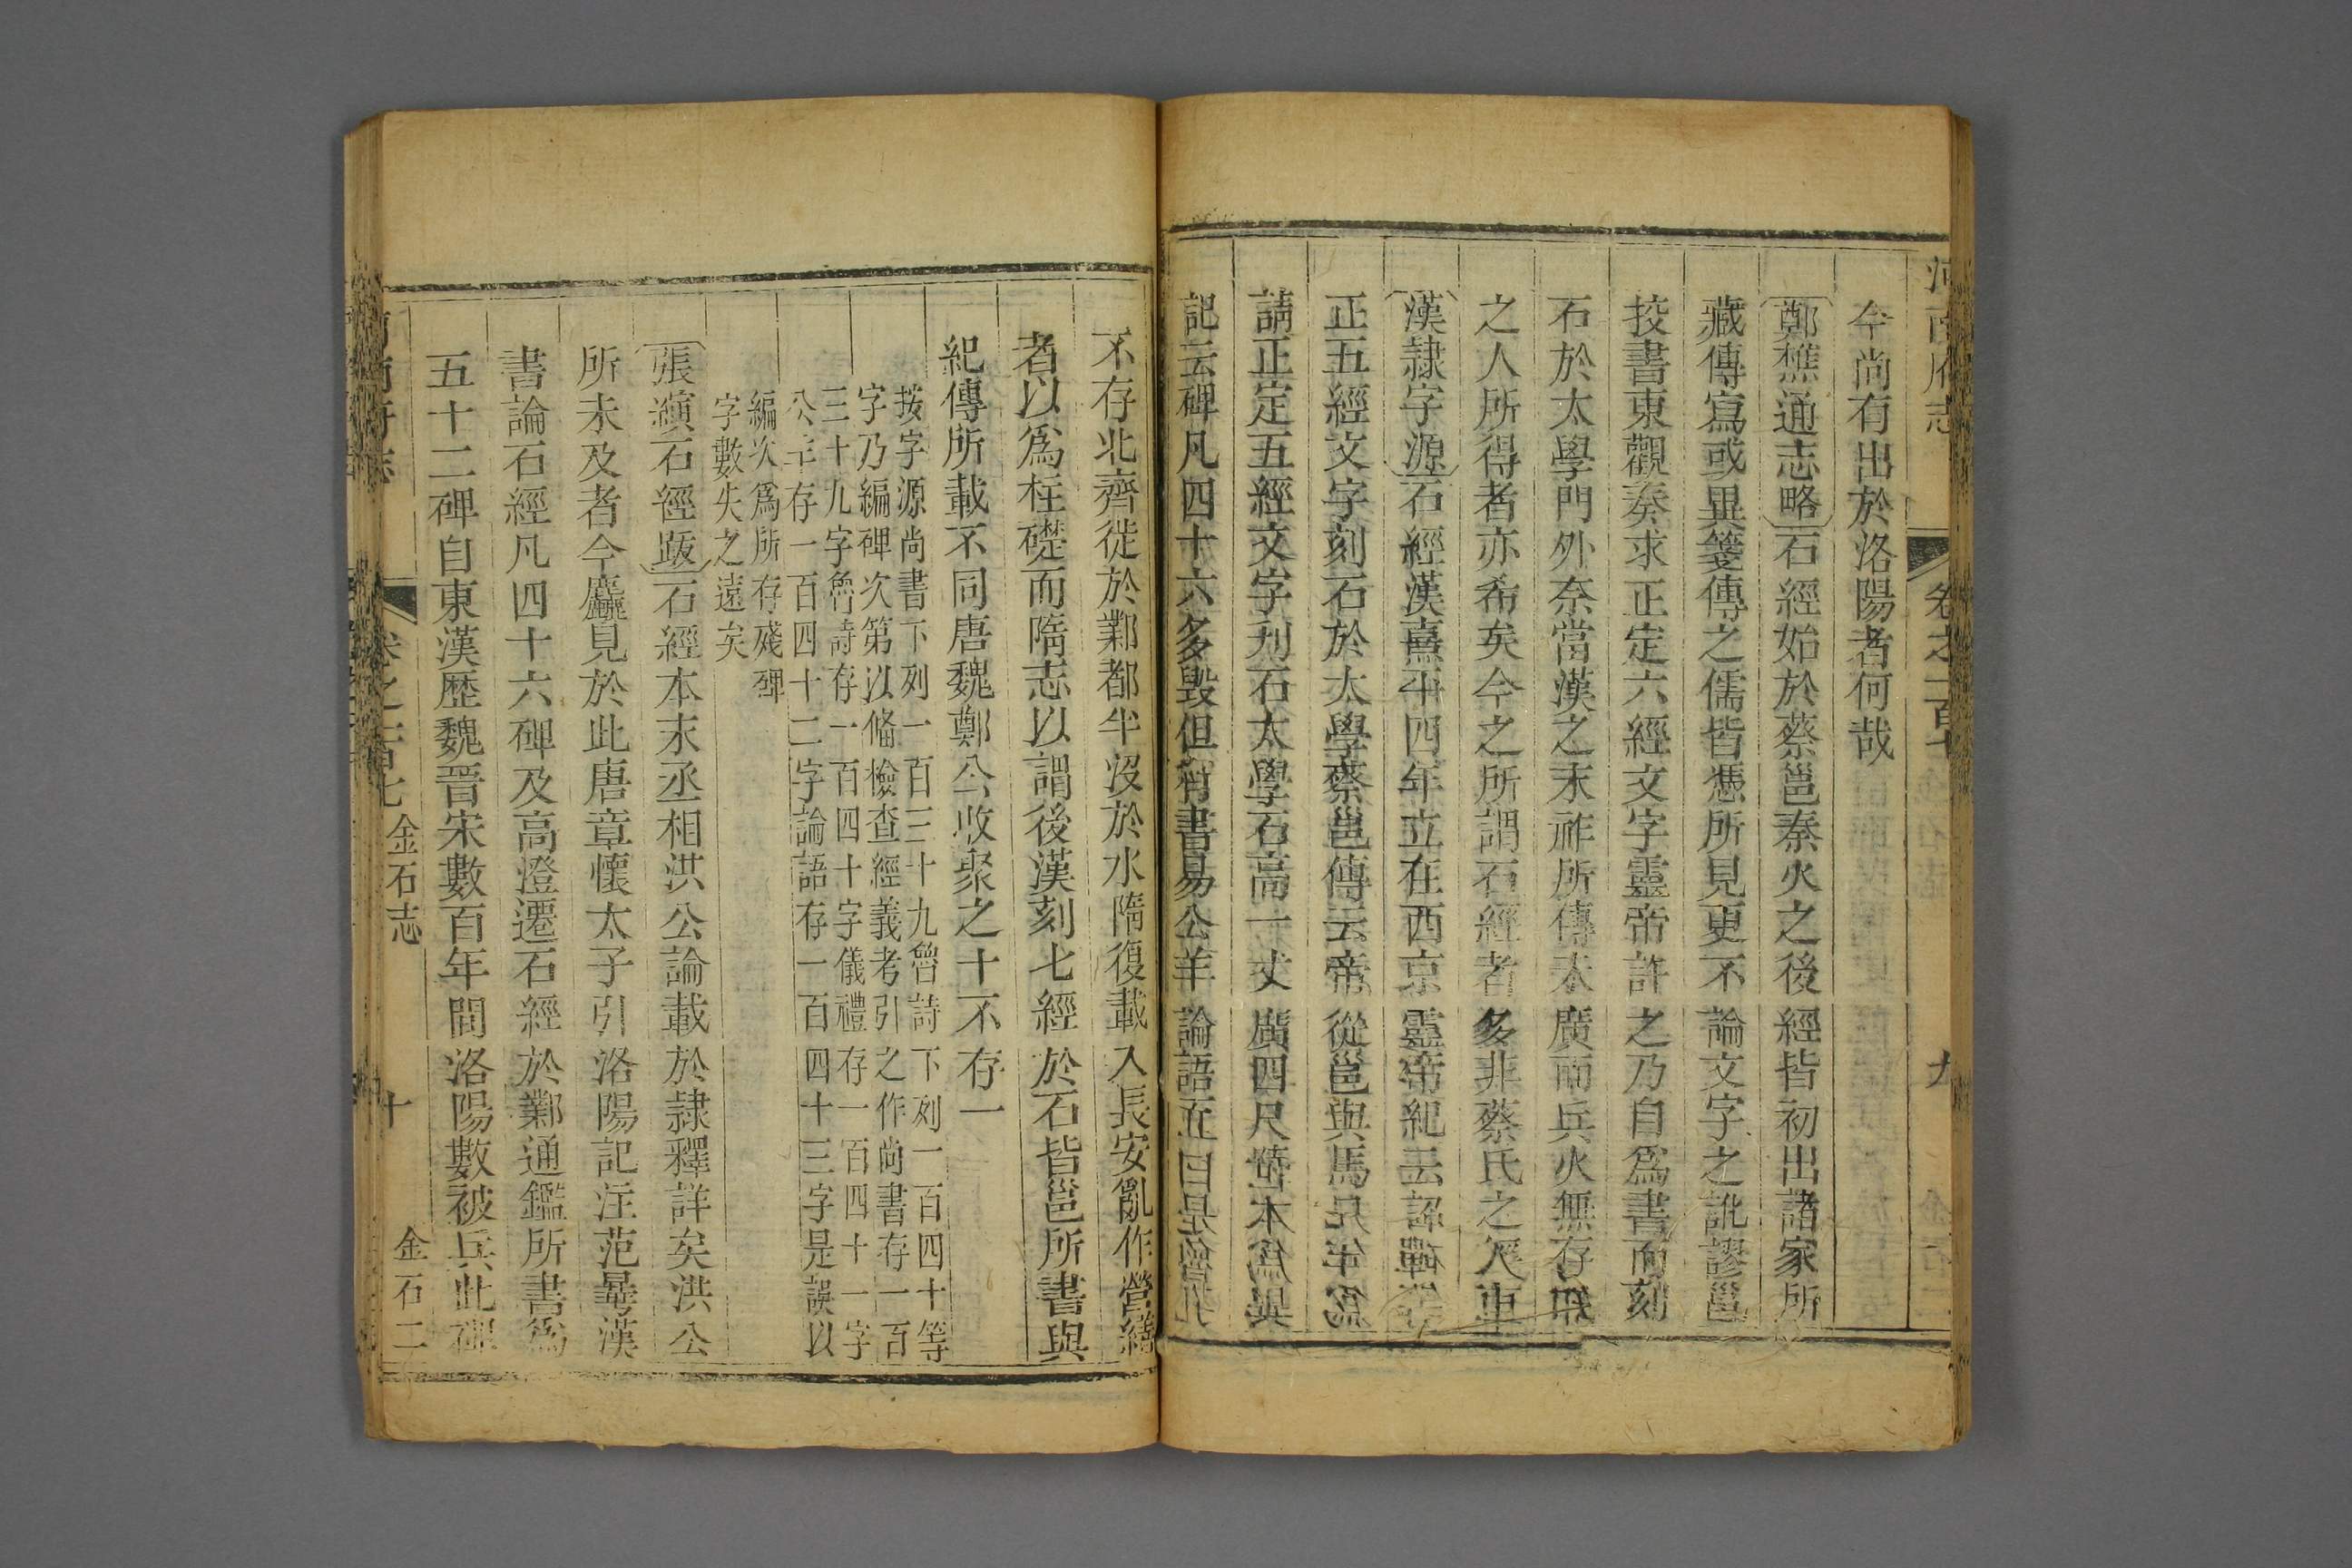 河南府志
卷之一百七
九
今尚有出於洛陽者何哉
鄭樵通志略石經始於蔡邕秦火之後經皆初出諸家所
藏傳寫或異箋傳之儒皆憑所見更不論文字之訛謬邕
挍書東觀奏求正定六經文字靈帝許之乃自爲書而刻
石於太學門外奈當漢之末祚所傳未廣而兵火無存後
之人所得者亦希矣今之所謂石經者多非蔡氏之經
漢隷字源石經漢熹平四年立在西京靈帝紀云詔諸儒
正五經文字刻石於太學蔡邕傳云帝從邕與馬日磾等
請正定五經文字刋石太學石高一丈廣四尺
記云碑凡四十六多毁但有書易公羊論語
不存北齊徙於鄴都半沒於水隋復載入長安亂作營繕
者以爲柱礎而隋志以謂後漢刻七經於石皆邕所書與
紀傳所載不同唐魏鄭公收聚之十不存一
按字源尚書下列一百三十九魯詩下列一百四十等
字乃編碑次第以偹檢查經義考引之作尚書存一百
三十九字魯詩存一百四十字儀禮存一百四十一字
公羊存一百四十二字論語存一百四十三字是誤以
編次爲所存殘碑
字數失之遠矣
張縯石經跋石經本末丞相洪公論載於隷釋詳矣洪公
所未及者今麤見於此唐章懷太子引洛陽記注范曅漢
書論石經凡四十六碑及高澄遷石經於鄴通鑑所書爲
五十二碑自東漢歷魏晋宋數百年間洛陽數被兵此碑
河南府志
卷之一百七
金石志
十
金石二